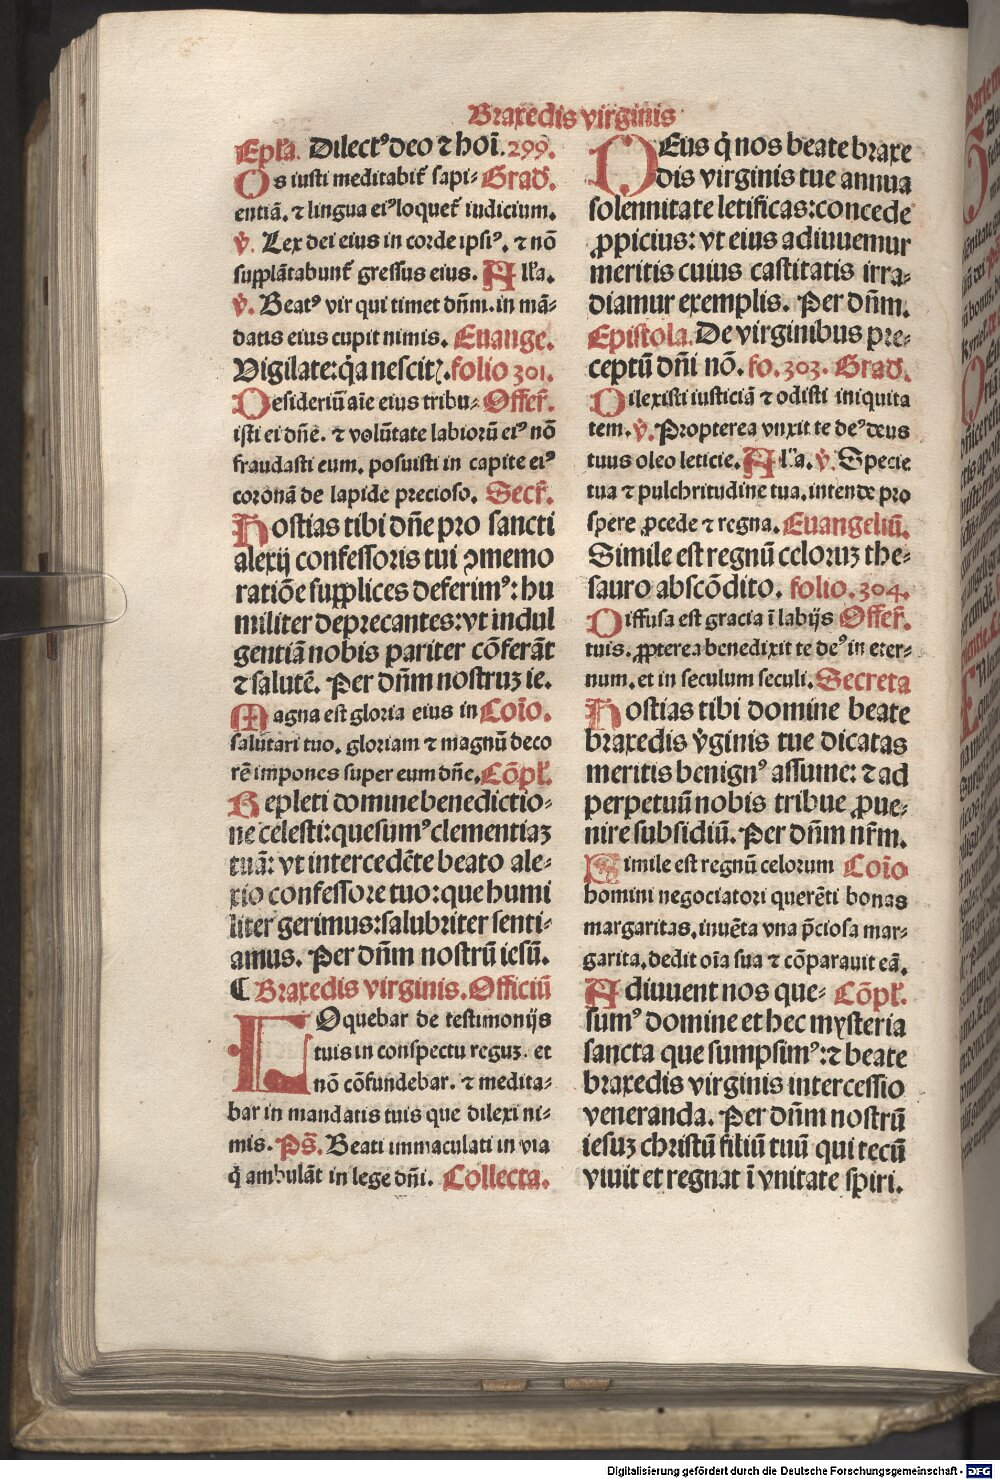 Braxedis virginis
Epła. Dilectꝰ deo ⁊ hoı̄. 299.
Os iusti meditabit̄ sapi- Grad̄.
entiā. ⁊ lingua eiꝰ loquet̄ iudicium.
v̄. Lex dei eius in corde ipsiꝰ. ⁊ nō
supplātabunt̄ gressus eius. Alła.
v̄. Beatꝰ vir qui timet dn̄m. in mā-
datis eius cupit nimis. Euange.
Vigilate: q̇a nescitꝭ. folio 301.
Desideriū aīe eius tribu- Offer̄.
isti ei dn̄e. ⁊ volūtate labiorū eiꝰ nō
fraudasti eum. posuisti in capite eiꝰ
coronā de lapide precioso. Secr̄.
Hostias tibi dn̄e pro sancti
alexij confessoris tui ↄmemo
ratiōe supplices deferimꝰ: hu
militer deprecantes: vt indul
gentiā nobis pariter cōferāt
⁊ salutē. Per dn̄m nostruꝫ ie.
Magna est gloria eius in Coīo.
salutari tuo. gloriam ⁊ magnū deco
rē impones super eum dn̄e. Cōpł.
Repleti domine benedictio-
ne celesti: quesumꝰ clementiaꝫ
tuā: vt intercedēte beato ale-
xio confessore tuo: que humi
liter gerimus: salubriter senti-
amus. Per dn̄m nostrū iesū.
¶ Braxedis virginis. Officiū
LOquebar de testimonijs
tuis in conspectu reguꝫ. et
nō cōfundebar. ⁊ medita-
bar in mandatis tuis que dilexi ni-
mis. Ps̄. Beati immaculati in via
q̇ ambulāt in lege dn̄i. Collecta.
DEus q̇ nos beate braxe
dis virginis tue annua
solennitate letificas: concede
ꝓpicius: vt eius adiuuemur
meritis cuius castitatis irra-
diamur exemplis. Per dn̄m.
Epistola. De virginibus pre-
ceptū dn̄i nō. fo. 303. Grad̄.
Dilexisti iusticiā ⁊ odisti iniquita
tem. v̄. Propterea vnxit te deꝰ deus
tuus oleo leticie. Alła. v̄. Specie
tua ⁊ pulchritudine tua. intende pro
spere ꝓcede ⁊ regna. Euangeliū.
Simile est regnū celoruꝫ the-
sauro abscōdito. folio. 304.
Diffusa est gracia ī labijs Offer̄.
tuis. ꝓpterea benedixit te deꝰ in eter-
num. et in seculum seculi. Secreta
Hostias tibi domine beate
braxedis v̇ginis tue dicatas
meritis benignꝰ assume: ⁊ ad
perpetuū nobis tribue ꝓue-
nire subsidiū. Per dn̄m nr̄m.
Simile est regnū celorum Coīo
homini negociatori querēti bonas
margaritas. inuēta vna p̄ciosa mar-
garita. dedit oīa sua ⁊ cōparauit eā.
Adiuuent nos que- Cōpł.
sumꝰ domine et hec mysteria
sancta que sumpsimꝰ: ⁊ beate
braxedis virginis intercessio
veneranda. Per dn̄m nostrū
iesuꝫ christū filiū tuū qui tecū
viuit et regnat ī vnitate spiri.
Digitalisierung gefördert durch die Deutsche Forschungsgemeinschaft - DFG